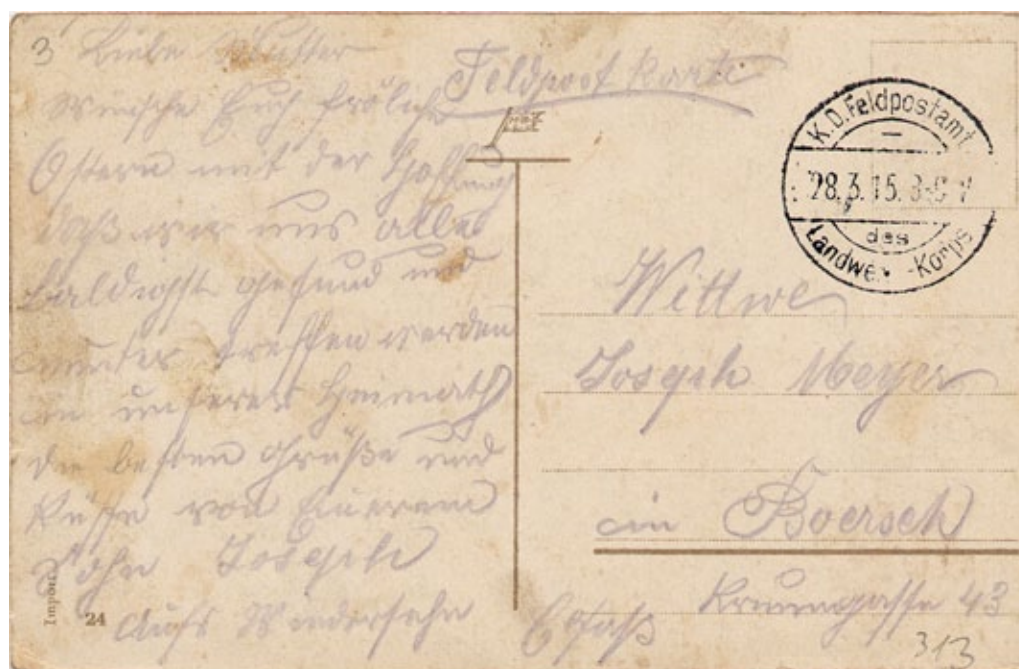 3
Liebe Mutter
Wünsche Euch fröliche
Ostern mit der Hoffnung
daß wir uns alle
baldigst gesund und
munter treffen werden
in unserer Heimath
die besten Grüße und
Küsse von Euerem
Sohn Joseph
Aufs Wiedersehn
Feldpostkarte
K.D. Feldpostamt
28.3.15. 8-9
des
Landwe -Korps
Wittwe
Joseph Meyer
in Boersch
Krummgasse 43
Elsaß
313
Import
24